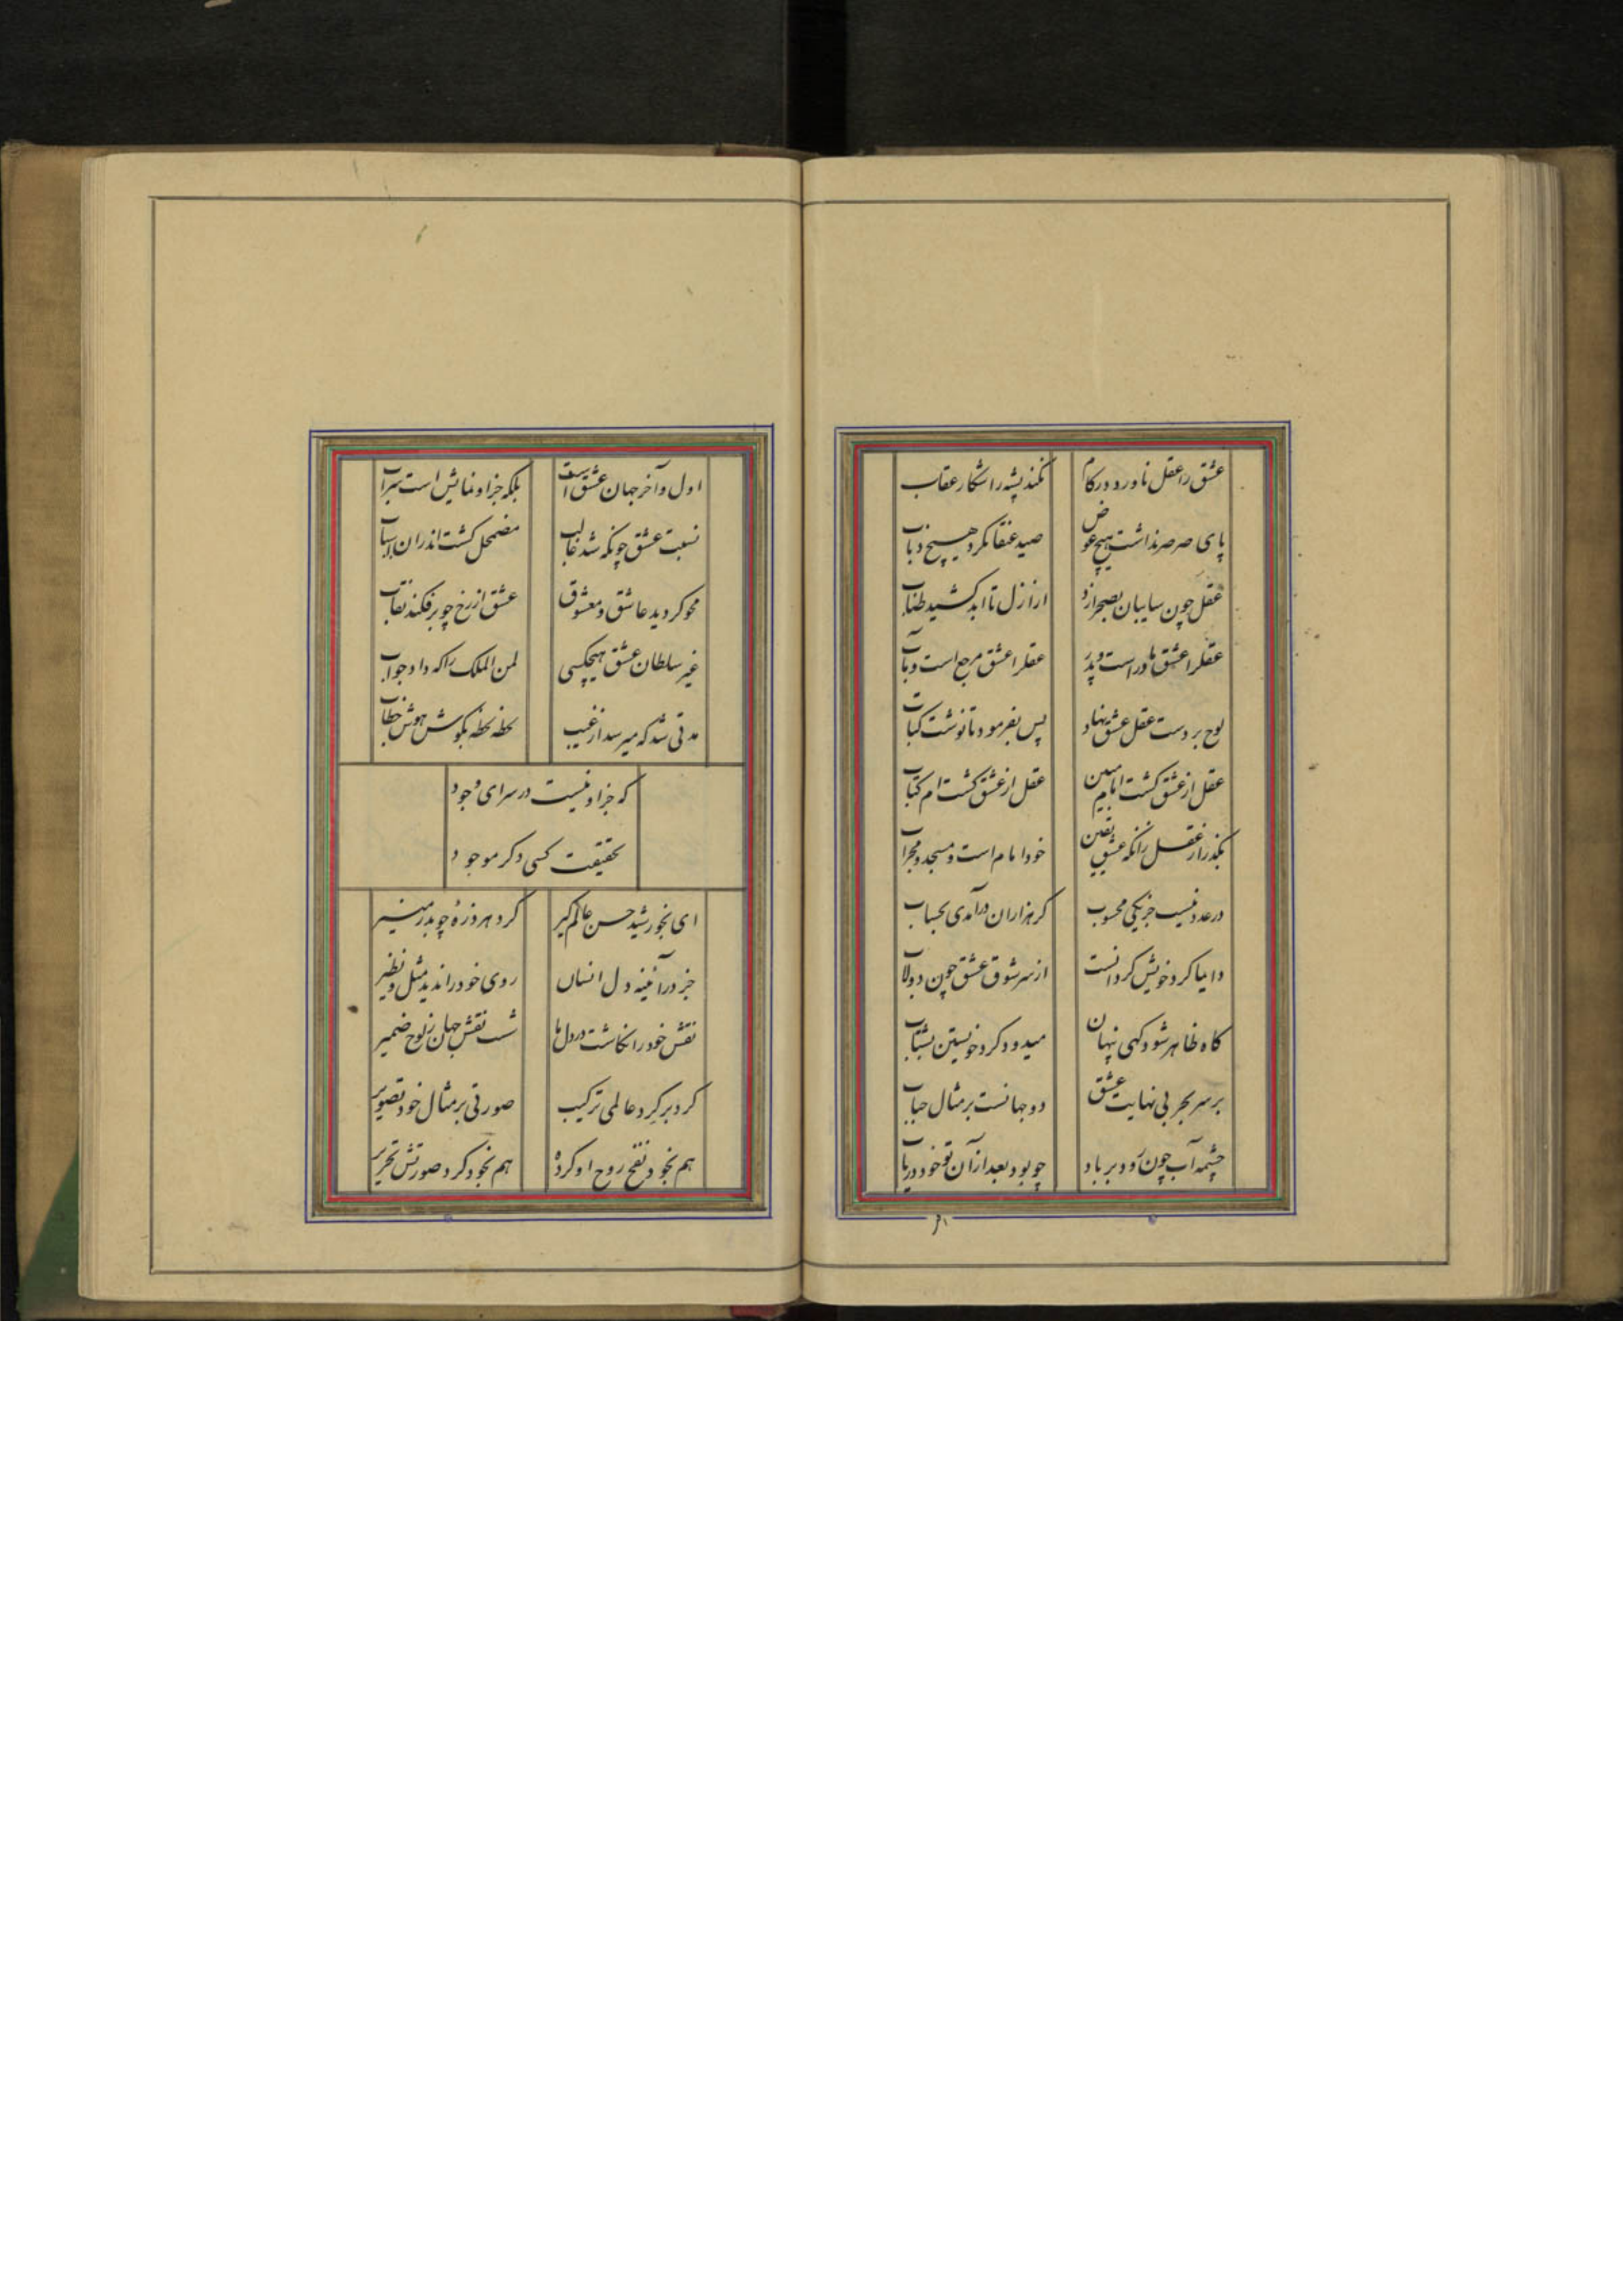 عشق را عقل ناورد در کام
نکند پشه را شکار عقاب
پای صرصر نداشت هیچ عوض
صید عنقا نکرد هیچ ذباب
عقل چون سایبان بصحرا زد
از ازل تا ابد کشید طناب
عقلرا عشق مادر است و پدر
عقلرا عشق مرجع است و مآب
لوح بر دست عقل عشق نهاد
پس بفرمود تا نوشت کتاب
عقل از عشق کشت امام مبین
عقل از عشق کشت ام کتاب
بکذر از عقل زانکه عشق یقین
خود امام است و مسجد و محراب
در عدد نیست جز یکی محسوب
کر هزاران در آمدی بحساب
دایما کرد خویش کردانست
از سر شوق عشق چون دولاب
کاه ظاهر شود کهی پنهان
میدود کرد خویشتن بشتاب
بر سر بحر بی نهایت عشق
دو جهانست بر مثال حباب
چشمه آب چون رود بر باد
چو بود بعد از آن تو خود دریاب
اول و آخر جهان عشق است
بلکه جز او نمایش است سراب
نسبت عشق چونکه شد غالب
مضمحل کشت اندران انساب
محو کردید عاشق و معشوق
عشق از رخ چو برفکند نقاب
غیر سلطان عشق هیچکسی
لمن الملک را که داد جواب
مدتی شد که میرسد از غیب
لحظه لحظه بکوش هوش خطاب
که جز او نیست در سرای وجود
بحقیقت کسی دکر موجود
ای بخورشید حسن عالم کیر
کرد هر ذرهٔ چو بدر منیر
جز در آئینه دل انسان
روی خود را ندید مثل و نظیر
نقش خود را نکاشت در دل ما
شست نقش جهان ز لوح ضمیر
کرد بر کرد عالمی ترکیب
صورتی بر مثال خود تصویر
هم بخود نفخ روح او کرده
هم بخود کرد صورتش تحریر